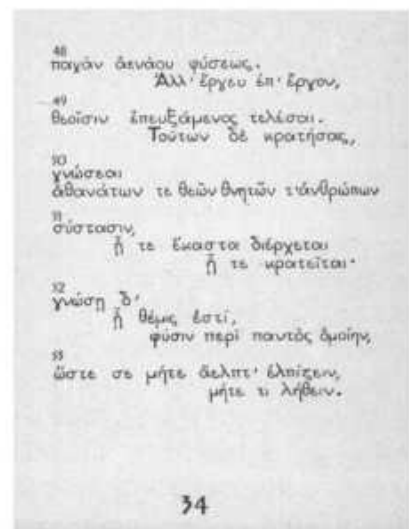 48
παγὰν ἀενάου φύσεως.
Ἀλλ' ἔρχευ ἐπ' ἔργον,
49
θεοῖσιν ἐπευξάμενος τελέσαι.
Τούτων δὲ κρατήσας,
50
γνώσεαι
ἀθανάτων τε θεῶν θνητῶν τ' ἀνθρώπων
51
σύστασιν,
ᾗ τε ἕκαστα διέρχεται
ᾗ τε κρατεῖται·
52
γνώσῃ δ'
ᾗ θέμις ἐστί,
φύσιν περὶ παντὸς ὁμοίην,
53
ὥστε σε μήτε ἄελπτ' ἐλπίζειν,
μήτε τι λήθειν.
34